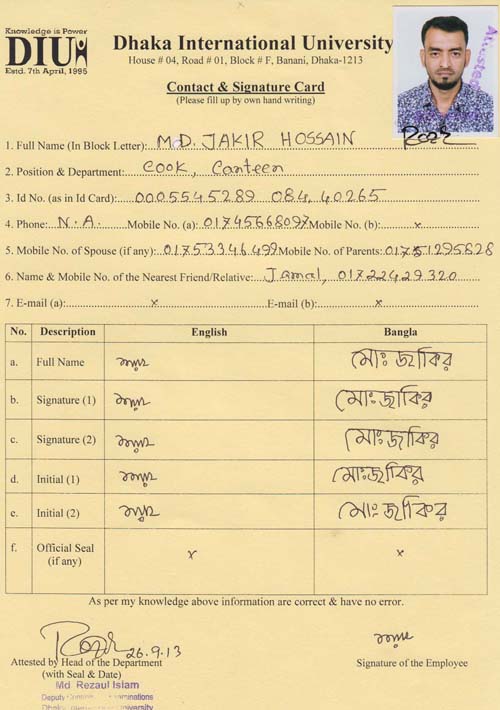 Knowledge is Power
DIU
Estd. 7th April, 1995
Dhaka International University
House # 04, Road # 01, Block # F, Banani, Dhaka-1213
Contact & Signature Card
(Please fill up by own hand writing)
Attested
1. Full Name (In Block Letter): MD. JAKIR HOSSAIN
2. Position & Department: Cook, Canteen
3. Id No. (as in Id Card): 0005545289 084, 40265
4. Phone: N.A. Mobile No. (a): 01745668097 Mobile No. (b): x
5. Mobile No. of Spouse (if any): 01753346499 Mobile No. of Parents: 01751295828
6. Name & Mobile No. of the Nearest Friend/Relative: Jamal, 01722429320
7. E-mail (a): x E-mail (b): x
No. Description English Bangla
a. Full Name মোঃ জাকির
b. Signature (1) মোঃ জাকির
c. Signature (2) মোঃ জাকির
d. Initial (1) মোঃ জাকির
e. Initial (2) মোঃ জাকির
f. Official Seal x x
(if any)
As per my knowledge above information are correct & have no error.
26.9.13
Attested by Head of the Department Signature of the Employee
(with Seal & Date)
Md Rezaul Islam
Deputy